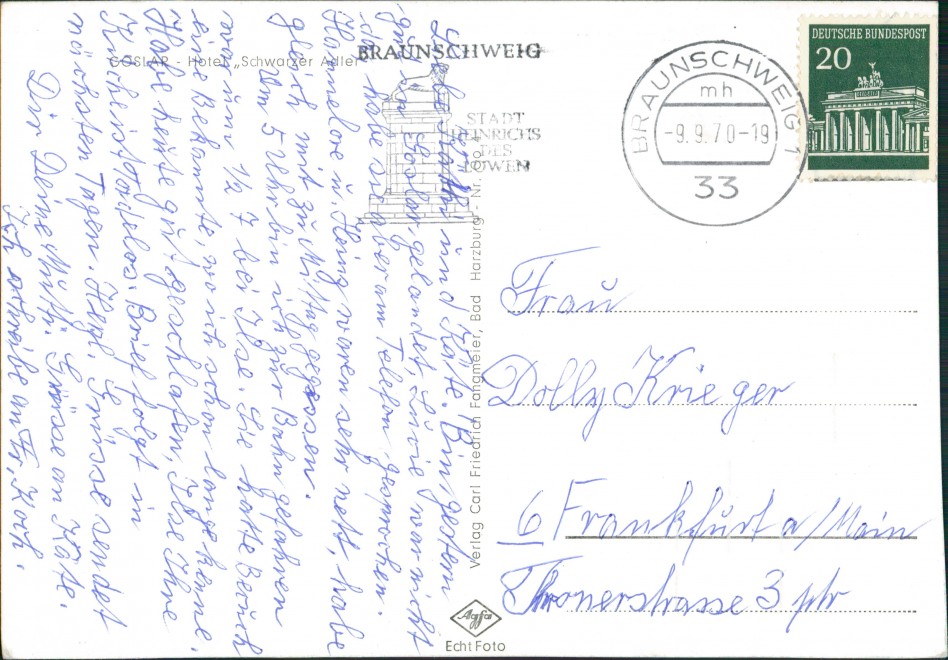 GOSLAR - Hotel „Schwarzer Adler"
BRAUNSCHWEIG
STADT
HEINRICHS
DES
LÖWEN
BRAUNSCHWEIG 1
mh
-9.9.70-19
33
DEUTSCHE BUNDESPOST
20
Liebe und Käte. Bin gestern
gut in Goslar gelandet, war nicht
da, habe sie aber am Telefon gesprochen.
Hannelore u. Heinz waren sehr nett, habe
gleich mit zu Mittag gegessen.
Um 5 Uhr bin ich zur Bahn gefahren
war um 1/2 7 bei Ilse. Sie hatte Besuch
eine Bekannte, wo ich schon lange kenne.
Habe heute gut geschlafen, Ilse Ihre
Küche ist tadellos. Brief folgt in
nächsten Tagen. Herzl. Grüsse sendet
Dir Deine Mutti. Grüsse an Käte.
Ich schreibe an Fr. Koch.
Verlag Carl Friedrich Fangmeier, Bad Harzburg - Nr.
Frau
Dolly Krieger
6 Frankfurt a/Main
Thronerstrasse 3 ptr
Agfa
Echt Foto